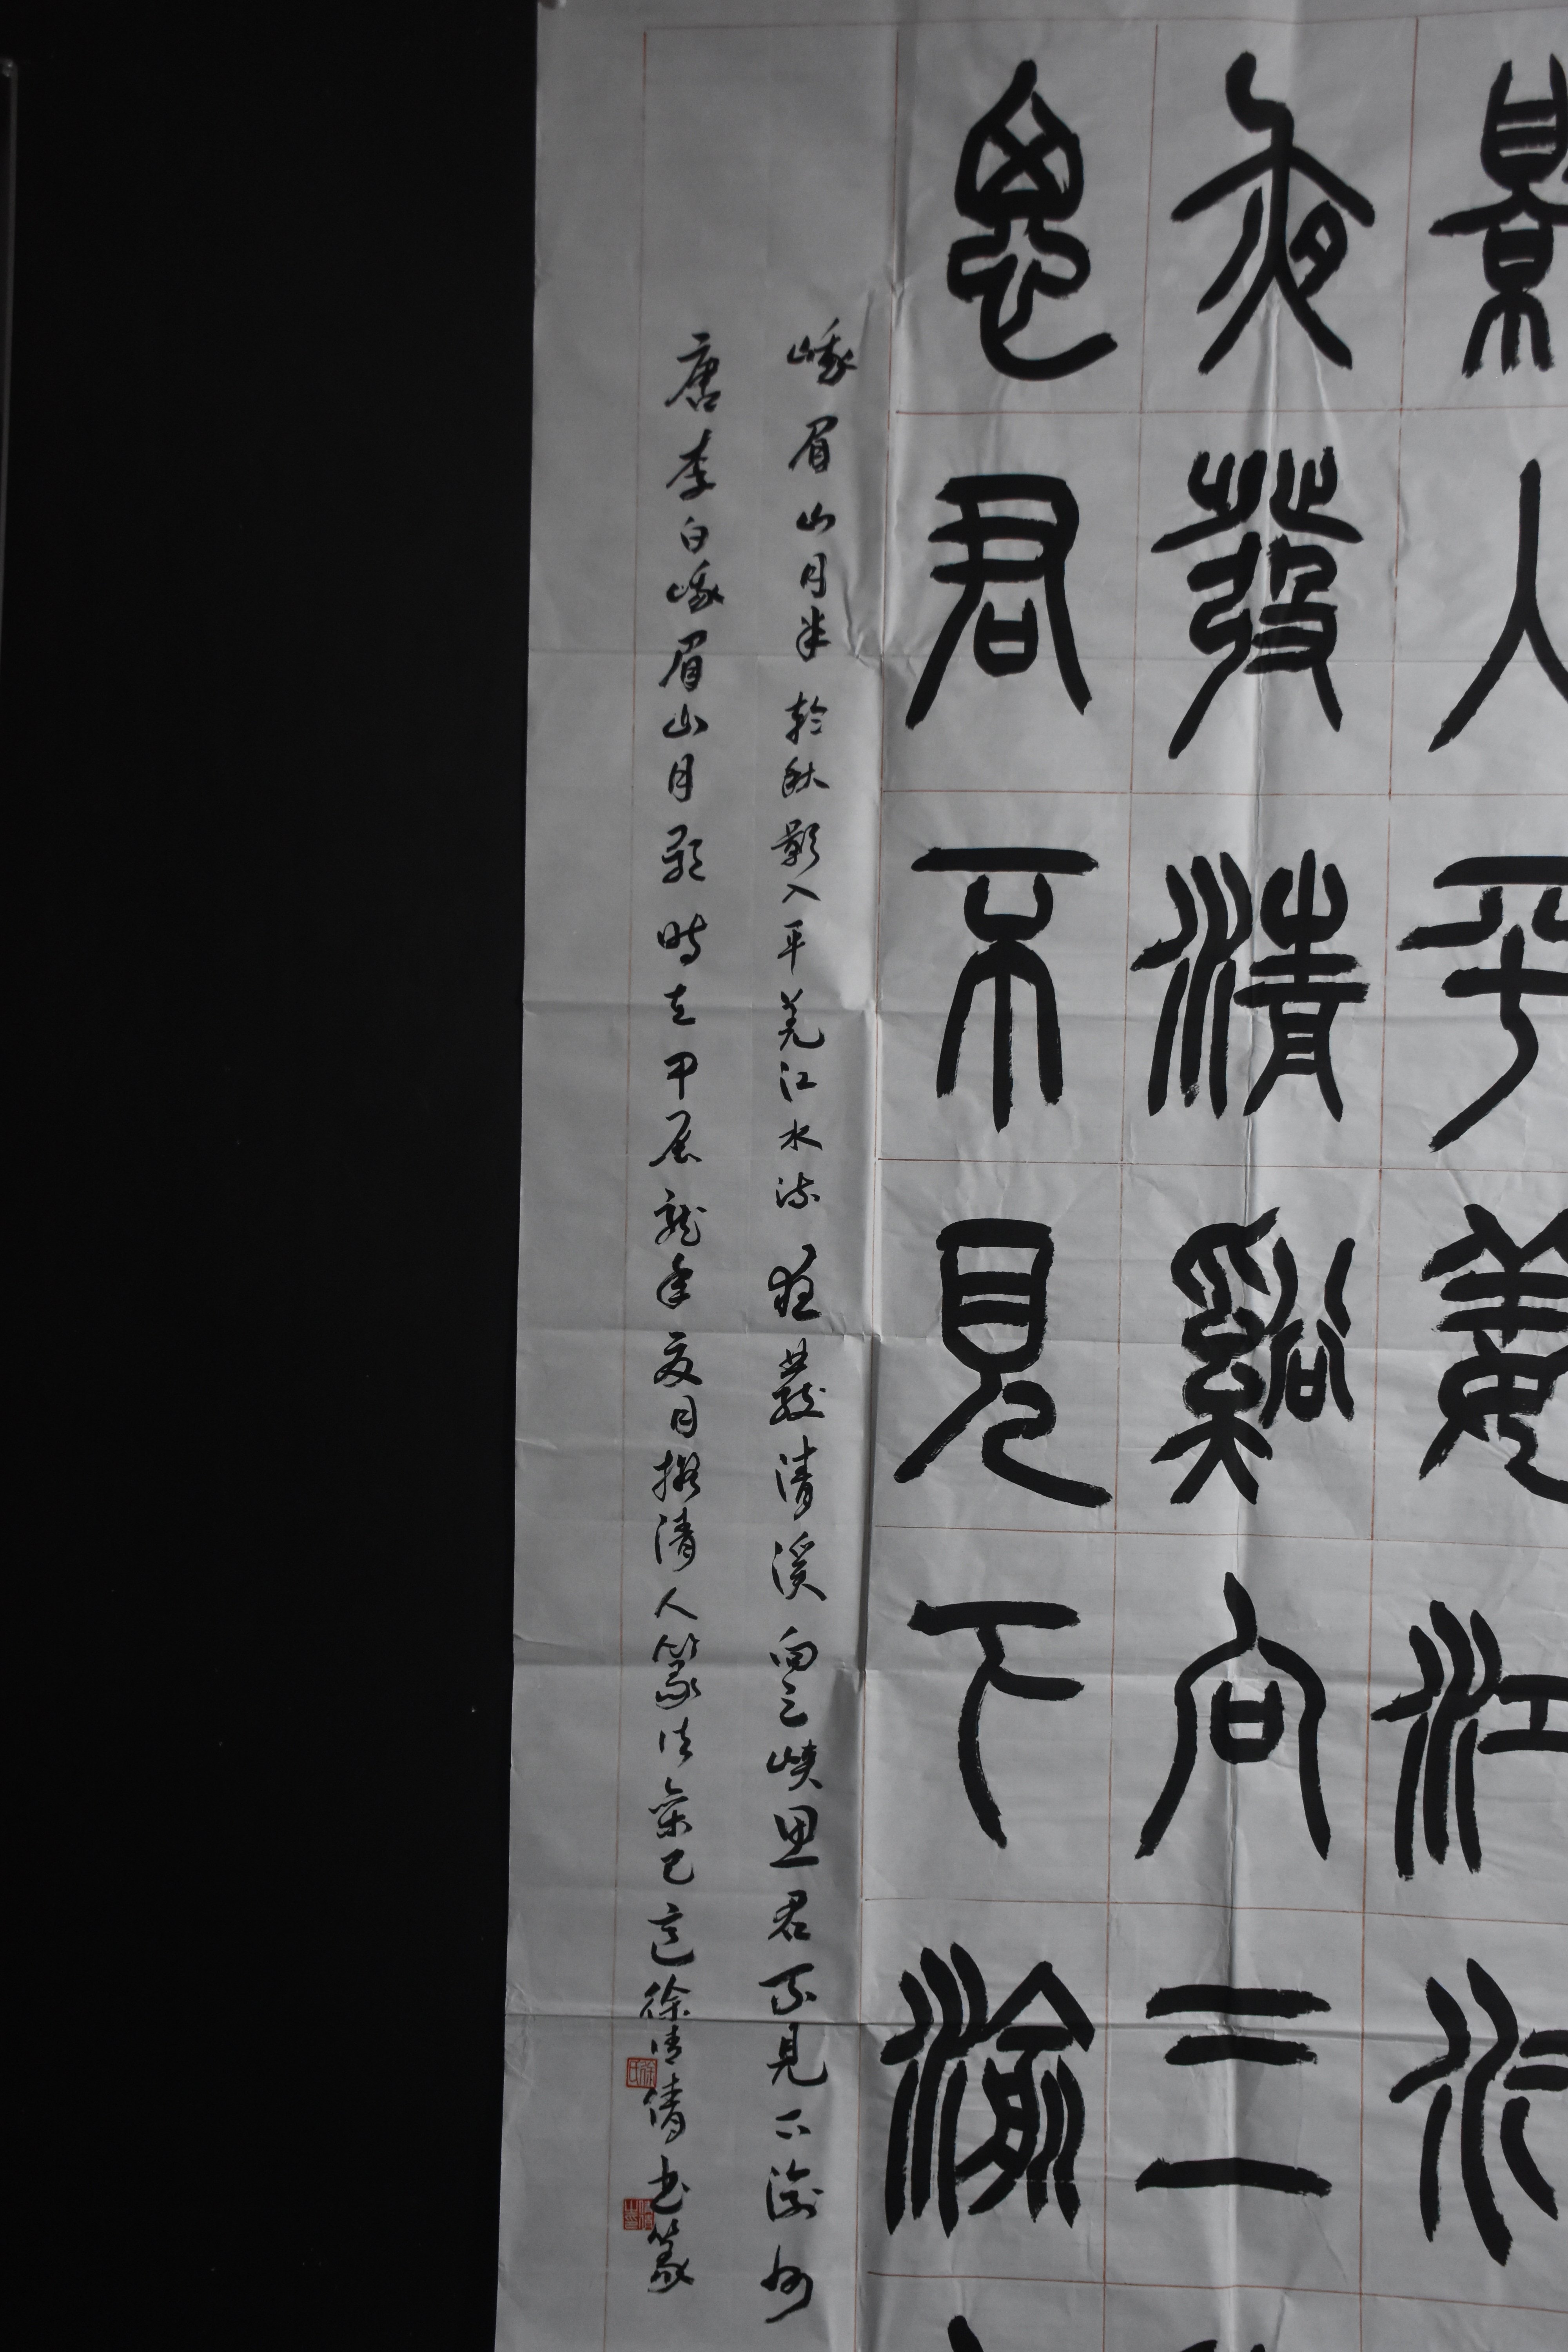 影入平羌江水
夜發清谿向三
思君不見下渝
峨眉山月半輪秋影入平羌江水流夜發清溪向三峽思君不見下渝州
唐李白峨眉山月歌時在甲辰龍年夏月擬清人篆法徐清倩书篆